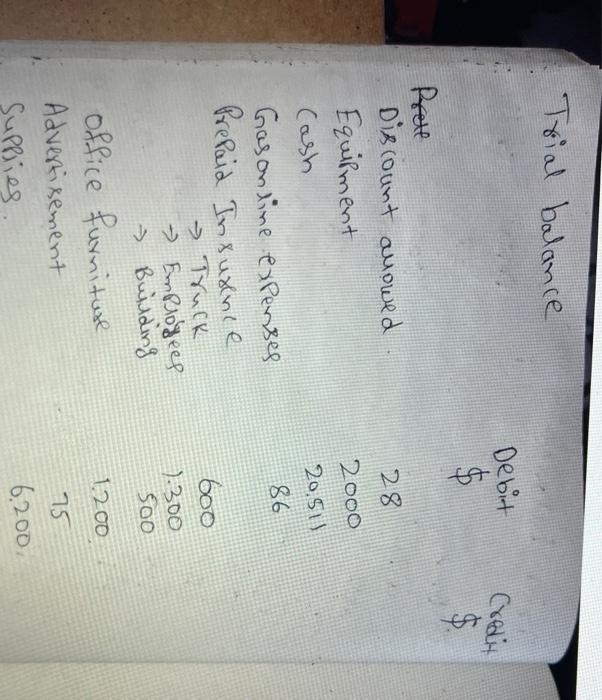 Trial balance
Debit Credit
$ $
Discount allowed. 28
Equipment 2000
Cash 20,511
Gasonline expenses 86
Prepaid Insurence
→ Truck 600
→ Employees 1,300
→ Building 500
Office furniture 1,200
Advertisement 75
Supplies. 6,200.